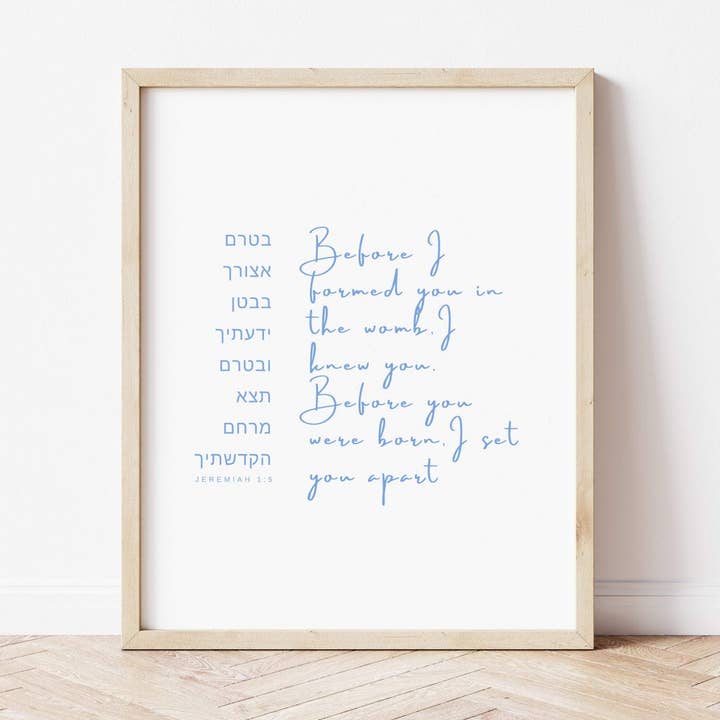 בטרם
אצורך
בבטן
ידעתיך
ובטרם
תצא
מרחם
הקדשתיך
JEREMIAH 1:5
Before I
formed you in
the womb, I
knew you.
Before you
were born, I set
you apart